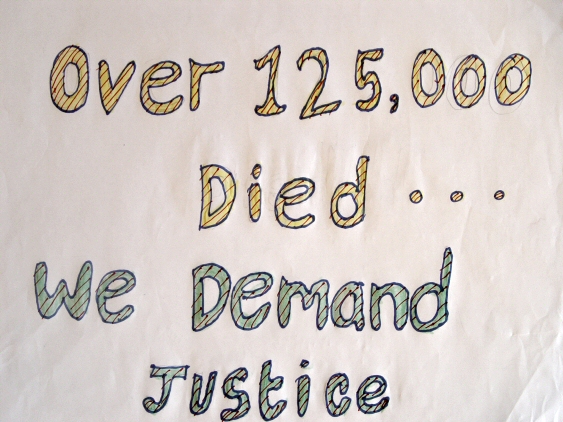 Over 125,000
Died ...
We Demand
Justice